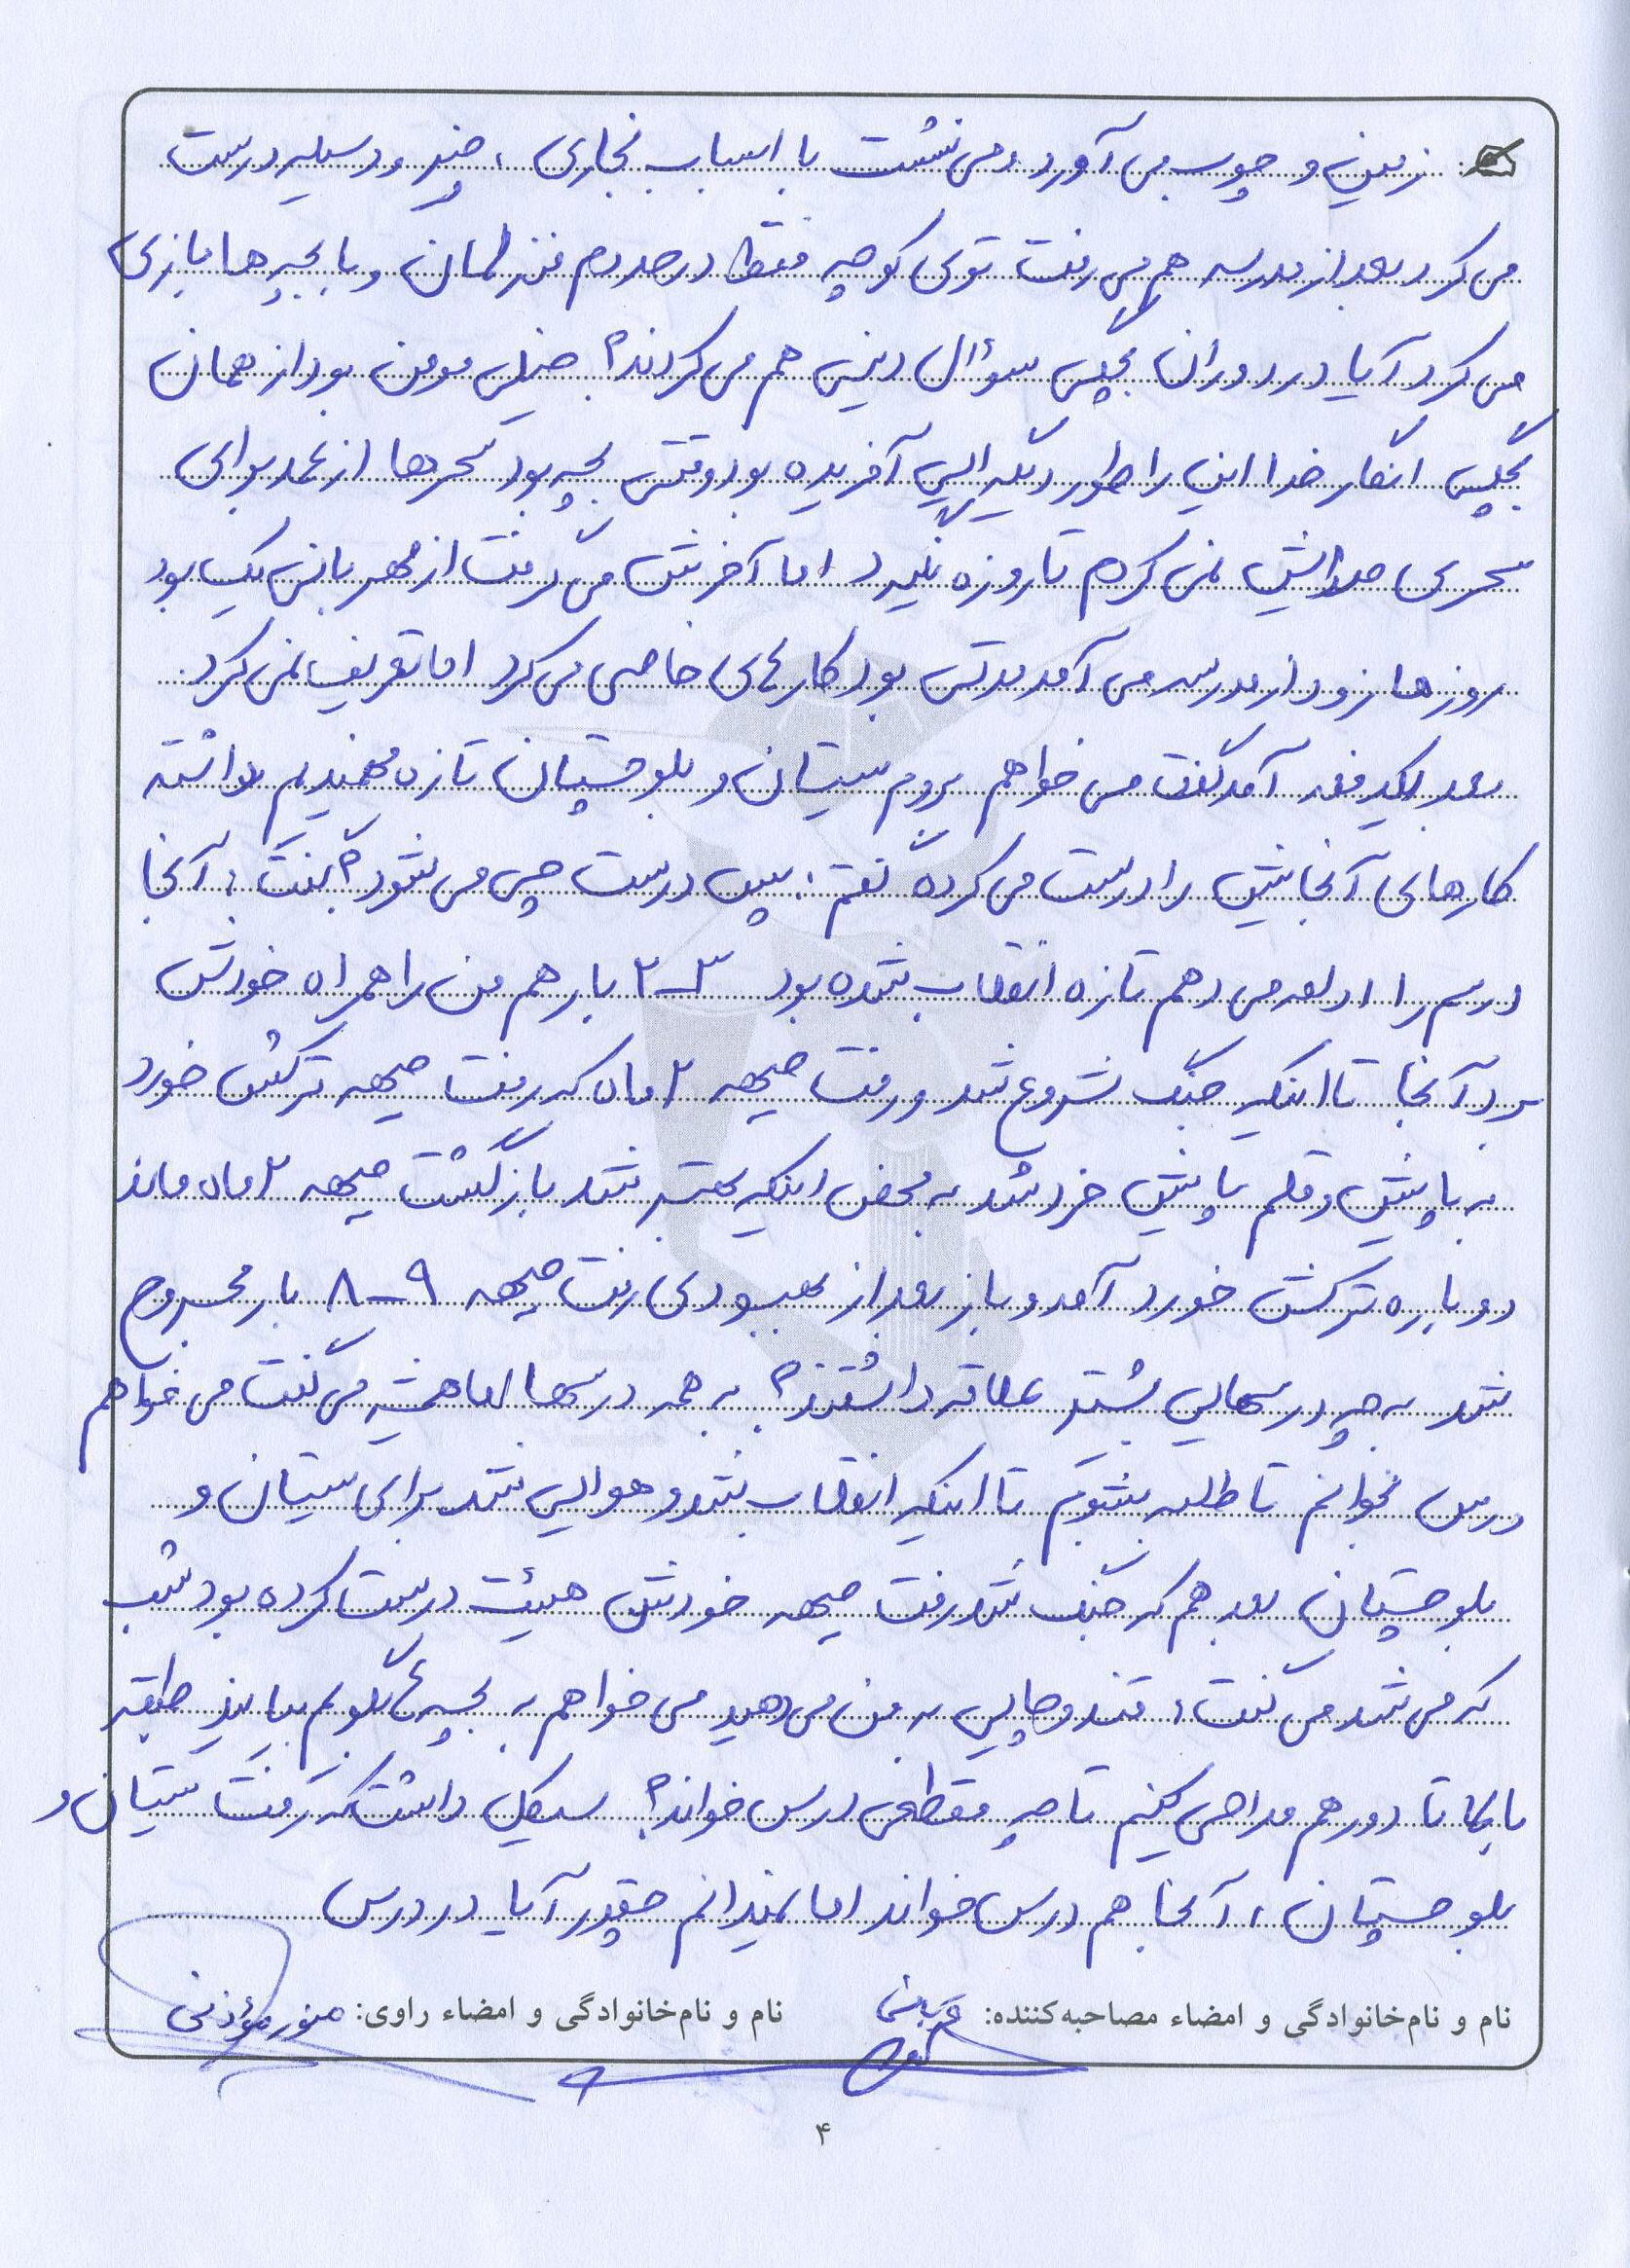 زمین و چوب می آورد و می نشست با اسباب نجاری، چند وسیله درست
می کرد بعد از مدرسه هم می رفت توی کوچه فقط در حد دم منزلمان و با بچه ها بازی
می کرد آیا در دوران بچگی سؤال دینی هم می کردند؟ خیلی مومن بود از همان
بچگی انگار خدا این را طور دیگه ایی آفریده بود وقتی بچه بود سحرها از عمد برای
سحری صدایش نمی کردم تا روزه نگیرد اما آخرش می گرفت از مهربانی یک بود
روزها زود از مدرسه می آمد مدتی بود کارهای خاصی می کرد اما تعریف نمی کرد.
بعد یکدفعه آمد گفت می خواهم بروم سیستان و بلوچستان تازه فهمیدیم یواشکی
کارهای آنجایش را درست می کرده گفتم: پس درست چی می شود؟ گفت: آنجا
درسم را ادامه می دهم تازه انقلاب شده بود ۳-۲ بار هم من را همراه خودش
برد آنجا تا اینکه جنگ شروع شد و رفت جبهه ۲ ماه که رفت جبهه ترکش خورد
به پایش و قلم پایش خرد شد به محض اینکه بهتر شد بازگشت جبهه ۲ ماه ماند
دوباره ترکش خورد آمد و باز بعد از بهبودی رفت جبهه ۹-۸ بار مجروح
شد به چه درسهایی بیشتر علاقه داشتند؟ به همه درسها اما همیشه می گفت می خواهم
درس بخوانم تا طلبه بشوم تا اینکه انقلاب شد و هوایی شد برای سیستان و
بلوچستان بعد هم که جنگ شد رفت جبهه خودش هیئت درست کرده بود شب
که می شد می گفت: قند و چایی به من می دهید می خواهم به بچه ها بگویم بیایند طبقه
بالا تا دور هم مداحی کنیم تا چه مقطعی درس خواند؟ سیکل داشت که رفت سیستان و
بلوچستان، آنجا هم درس خواند اما نمیدانم چقدر آیا در درس
نام و نام‌خانوادگی و امضاء مصاحبه‌کننده: نام و نام‌خانوادگی و امضاء راوی: منور مؤذنی
۴